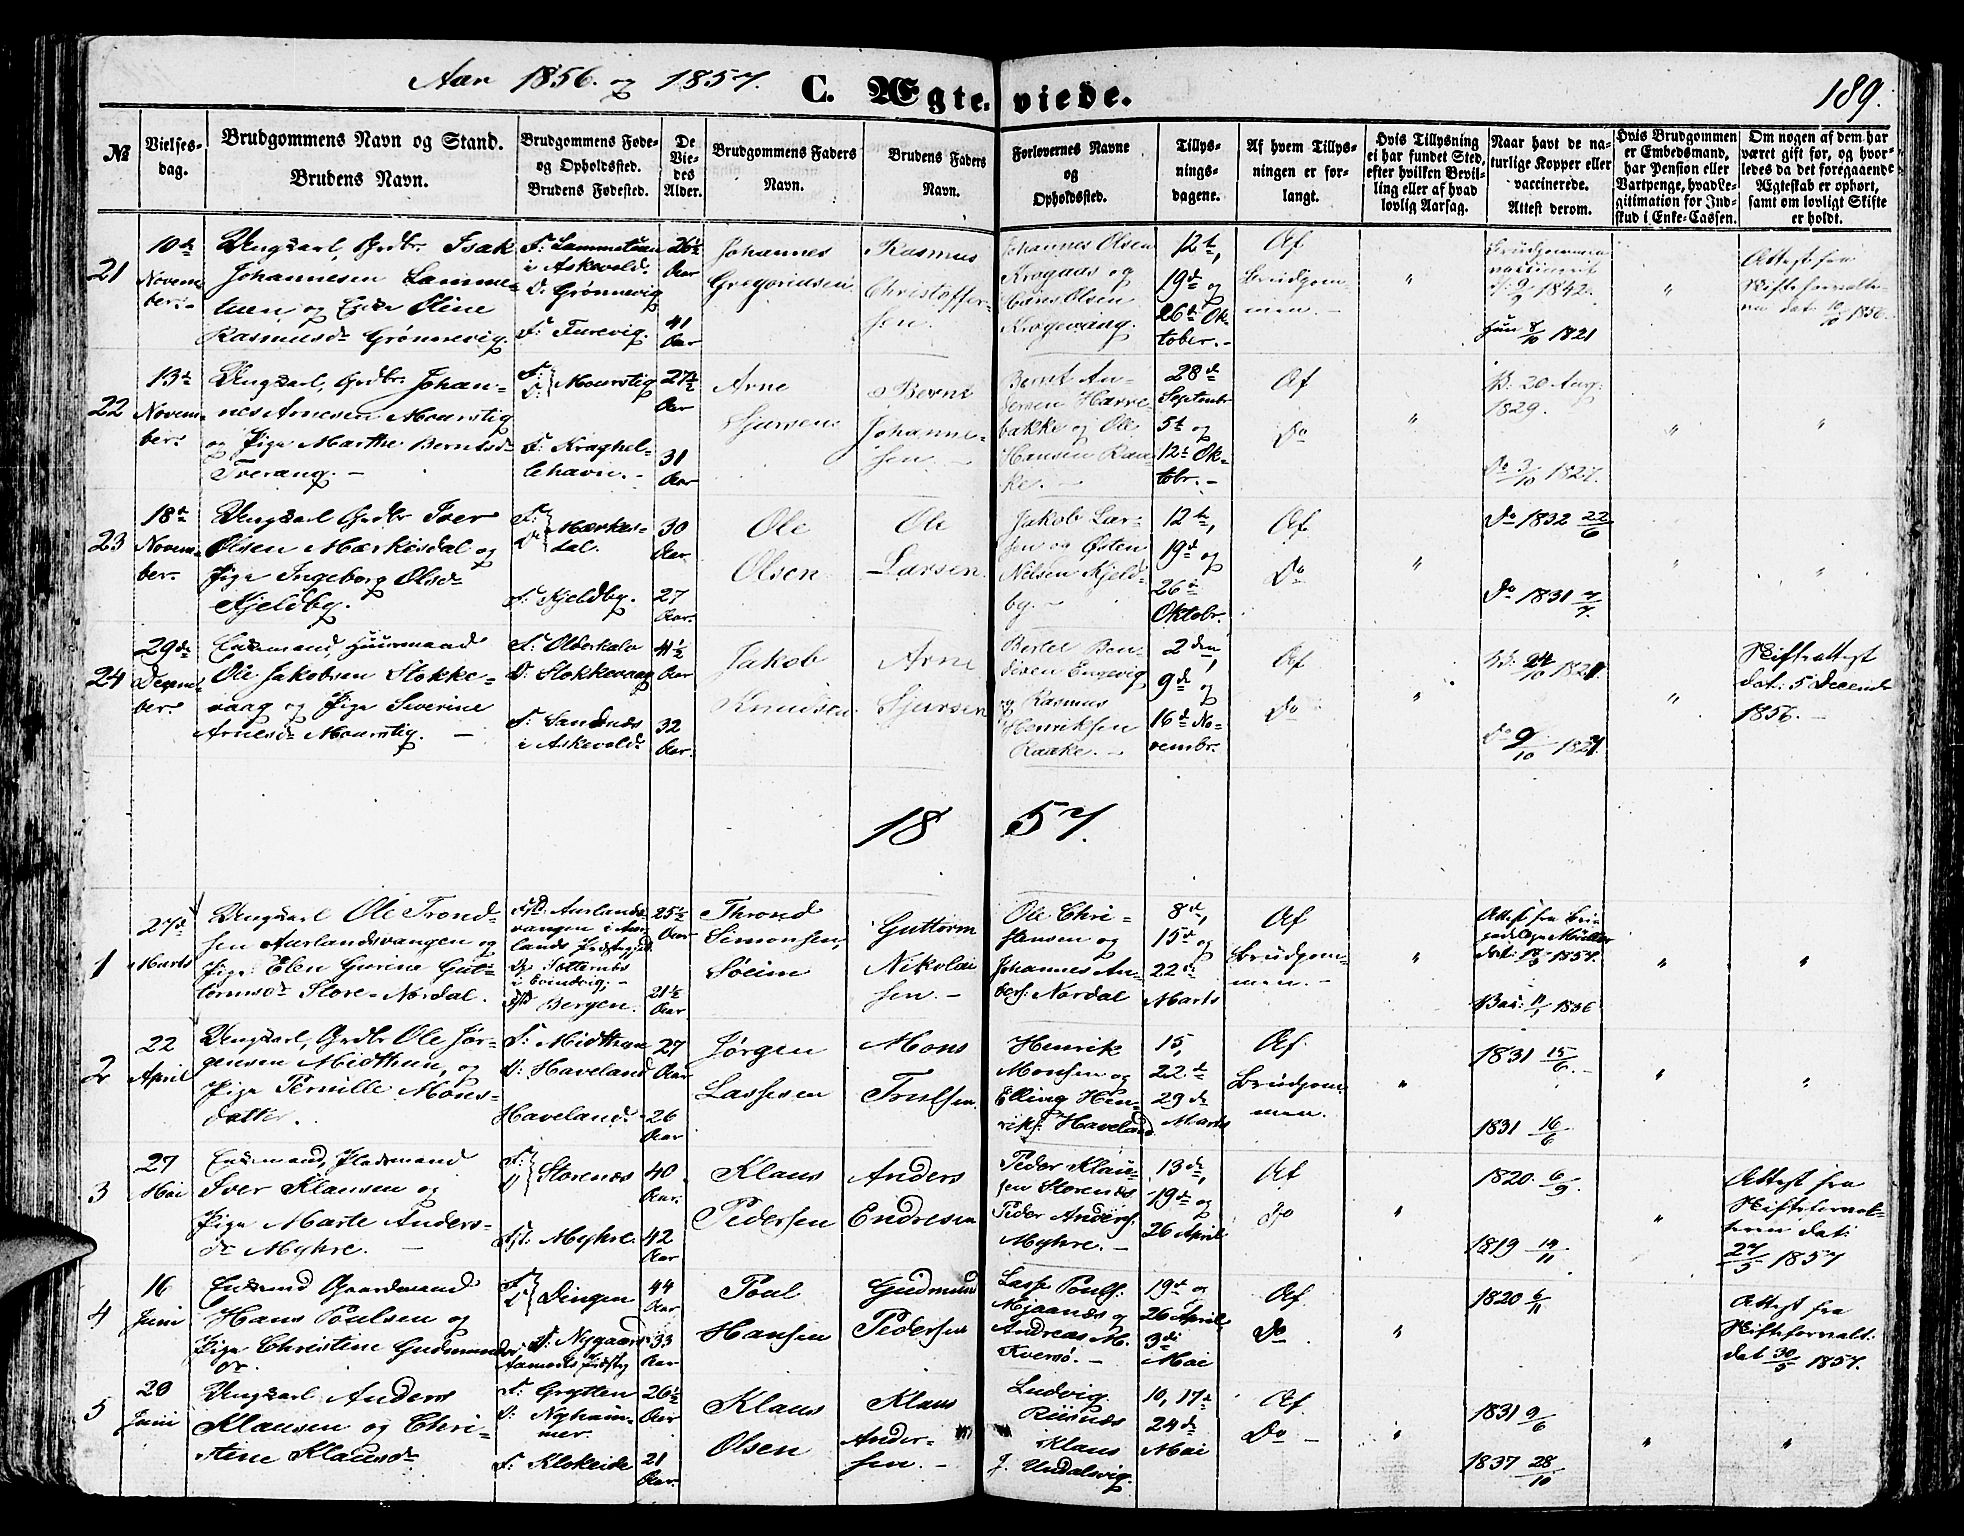 Aar 1856. og 1857. C. Ægteviede. 189.
№
Vielsesdag.
Brudgommens Navn og Stand.
Brudens Navn.
Brudgommens Føde- og Opholdssted.
Brudens Fødested.
De Viedes Alder.
Brudgommens Faders Navn.
Brudens Faders Navn.
Forlovernes Navne og Opholdssted.
Tillysningsdagene.
Af hvem Tillysningen er forlangt.
Hvis Tillysning ei har fundet Sted, efter hvilken Bevilling eller af hvad lovlig Aarsag.
Naar havt de naturlige Kopper eller vaccinerede. Attest derom.
Hvis Brudgommen er Embedsmand, har Pension eller Vartpenge, hvad Legitimation for Indskud i Enke-Cassen.
Om nogen af dem har været gift før, og hvorledes da det foregaaende Ægteskab er ophørt, samt om lovligt Skifte er holdt.
21
10de November.
Ungkarl, Grdbr. Isak
Johannesen Lamme-
tuen og Enke Oline
Rasmusdr Grønnevig.
F: Lammetuen
i Askevold.
O: Grønnevig
F: Furevig.
26½ Aar
41 Aar
Johannes
Gregoriusen
Rasmus
Christoffer-
sen.
Johannes Olsen
Krogaas og
Hans Olsen
Krogevaag.
12te,
19de og
26de Ok-
tober.
Af
Brudgom-
men.
"
Brudgommen
vaccineret
9/9 1842.
Hun 8/10 1821
"
Attest fra
Skifteforvalte-
ren dat. 10/10 1856.
22
13de November.
Ungkarl, Grdbr. Johan-
nes Arnesen Mourstig
og Pige Marthe Berntsdr
Tveraag.
F: O: Mourstig
F: Kraghel-
lehavn.
27½ Aar
31 Aar
Arne
Sjursen
Bernt
Johanne-
sen.
Bernt An-
dersen Hærre-
bakke og Ole
Hansen Raa-
ke.
28de
Septembr
5te og
12te Ok-
tobr.
Af
Do
"
B: 20 Aug:
1829.
Do 3/10 1827.
"
"
23
18de November.
Ungkarl Grdbr Iver
Olsen Mærkesdal og
Pige Ingeborg Olsdr
Kjeldby.
F: O: Mærkes-
dal.
F: Kjeldby.
30 Aar
27 Aar.
Ole
Olsen
Ole
Larsen.
Jakob Lar-
sen og Østen
Nilsen Kjeld-
by.
12te,
19de og
26de
Oktobr.
Af
Do
"
Do 1832 22/6
Do 1831 7/7.
"
"
24
29de December.
Enkemand, Huusmand
Ole Jakobsen Stokke-
vaag og Pige Severine
Arnesdr Mourstig.
F: Olderkalv
O: Stokkevaag
F: Sandnæs
i Askevold.
41½ Aar
32 Aar.
Jakob
Knudsen
Arne
Sjursen
Bertel Ben-
dixen Engevig
og Rasmus
Henriksen
Raake.
2den,
9de og
16de No-
vembr.
Af
Do
"
B: 24/10 1821.
Do 9/10 1821.
"
Skifteattest
dat: 5 Decembr
1856.
1857.
1
27de Marts
Ungkarl Ole Trond-
sen Aurlandsvangen og
Pige: Elen Gurine Gut-
tormsdr Store-Nordal.
Fst: Aurlands-
vangen i Aur-
lands Præstegjeld
i Evindvig;
Fst Bergen.
25½ Aar
21½ Aar.
Thrond
Simonsen
Søeim
Guttorm
Nikolai
sen.
Ole Chri-
stensen og
Johannes An-
ders. Nordal
8de,
15de og
22de
Marts
Af
Brudgom-
men.
"
Attest fra
dat: 1857.
Vac: 11/1 1836
"
"
2
22 April
Ungkarl, Grdbr Ole Jør-
gensen Midthun, og
Pige Pernille Mons-
datter.
F: Midthun
O: Haveland
Haveland.
27 Aar
26 Aar
Jørgen
Lassesen
Mons
Trulsen.
Henrik
Monsen og
Elling Hen-
riks. Haveland
15,
22de
29de
Marts
Af
Brudgom-
men.
"
1831 15/6.
1831 16/6
"
"
3
27 Mai
Enkemand, Pladsmand
Iver Klausen og
Pige Marte Anders-
dr Myhre.
F: O: Storenæs
Fst: Myhre.
40 Aar.
42 Aar
Klaus
Pedersen
Anders
Endresen
Peder Klau-
sen Storenæs
Peder Anders.
Myhre.
13de,
19de og
26 April
Af
Do
"
1820. 6/9.
1819 19/11.
"
Attest fra
Skifteforval-
teren dat:
27/5 1857
4
16 Juni
Enkemd Gaardmand
Hans Poulsen og
Pige Christine Gudmunds-
dr.
F: O: Dingen
F: Nygaard
44 Aar
33 Aar
Poul
Hansen
Gudmund
Pedersen
Lasse Pouls.
Mjaanæs og
Andreas M.
Kversø.
19de og
26 April,
3di
Mai
Af
Do
"
1820 6/11
Attest fra
Skifteforvalt.
dat 30/5 1857.
5
20 Juni
Ungkarl Anders
Klausen og Chri-
stine Klausdr
F: Grytten
O: Nyham-
mer.
F: Klokeide
26½ Aar
21 Aar.
Klaus
Olsen
Klaus
Ander-
sen.
Ludvig
Risnæs
Klaus
J. Undalsvig.
10, 17de
24de
Mai
Af
Do
"
1831 9/6
1837 28/10
"
"